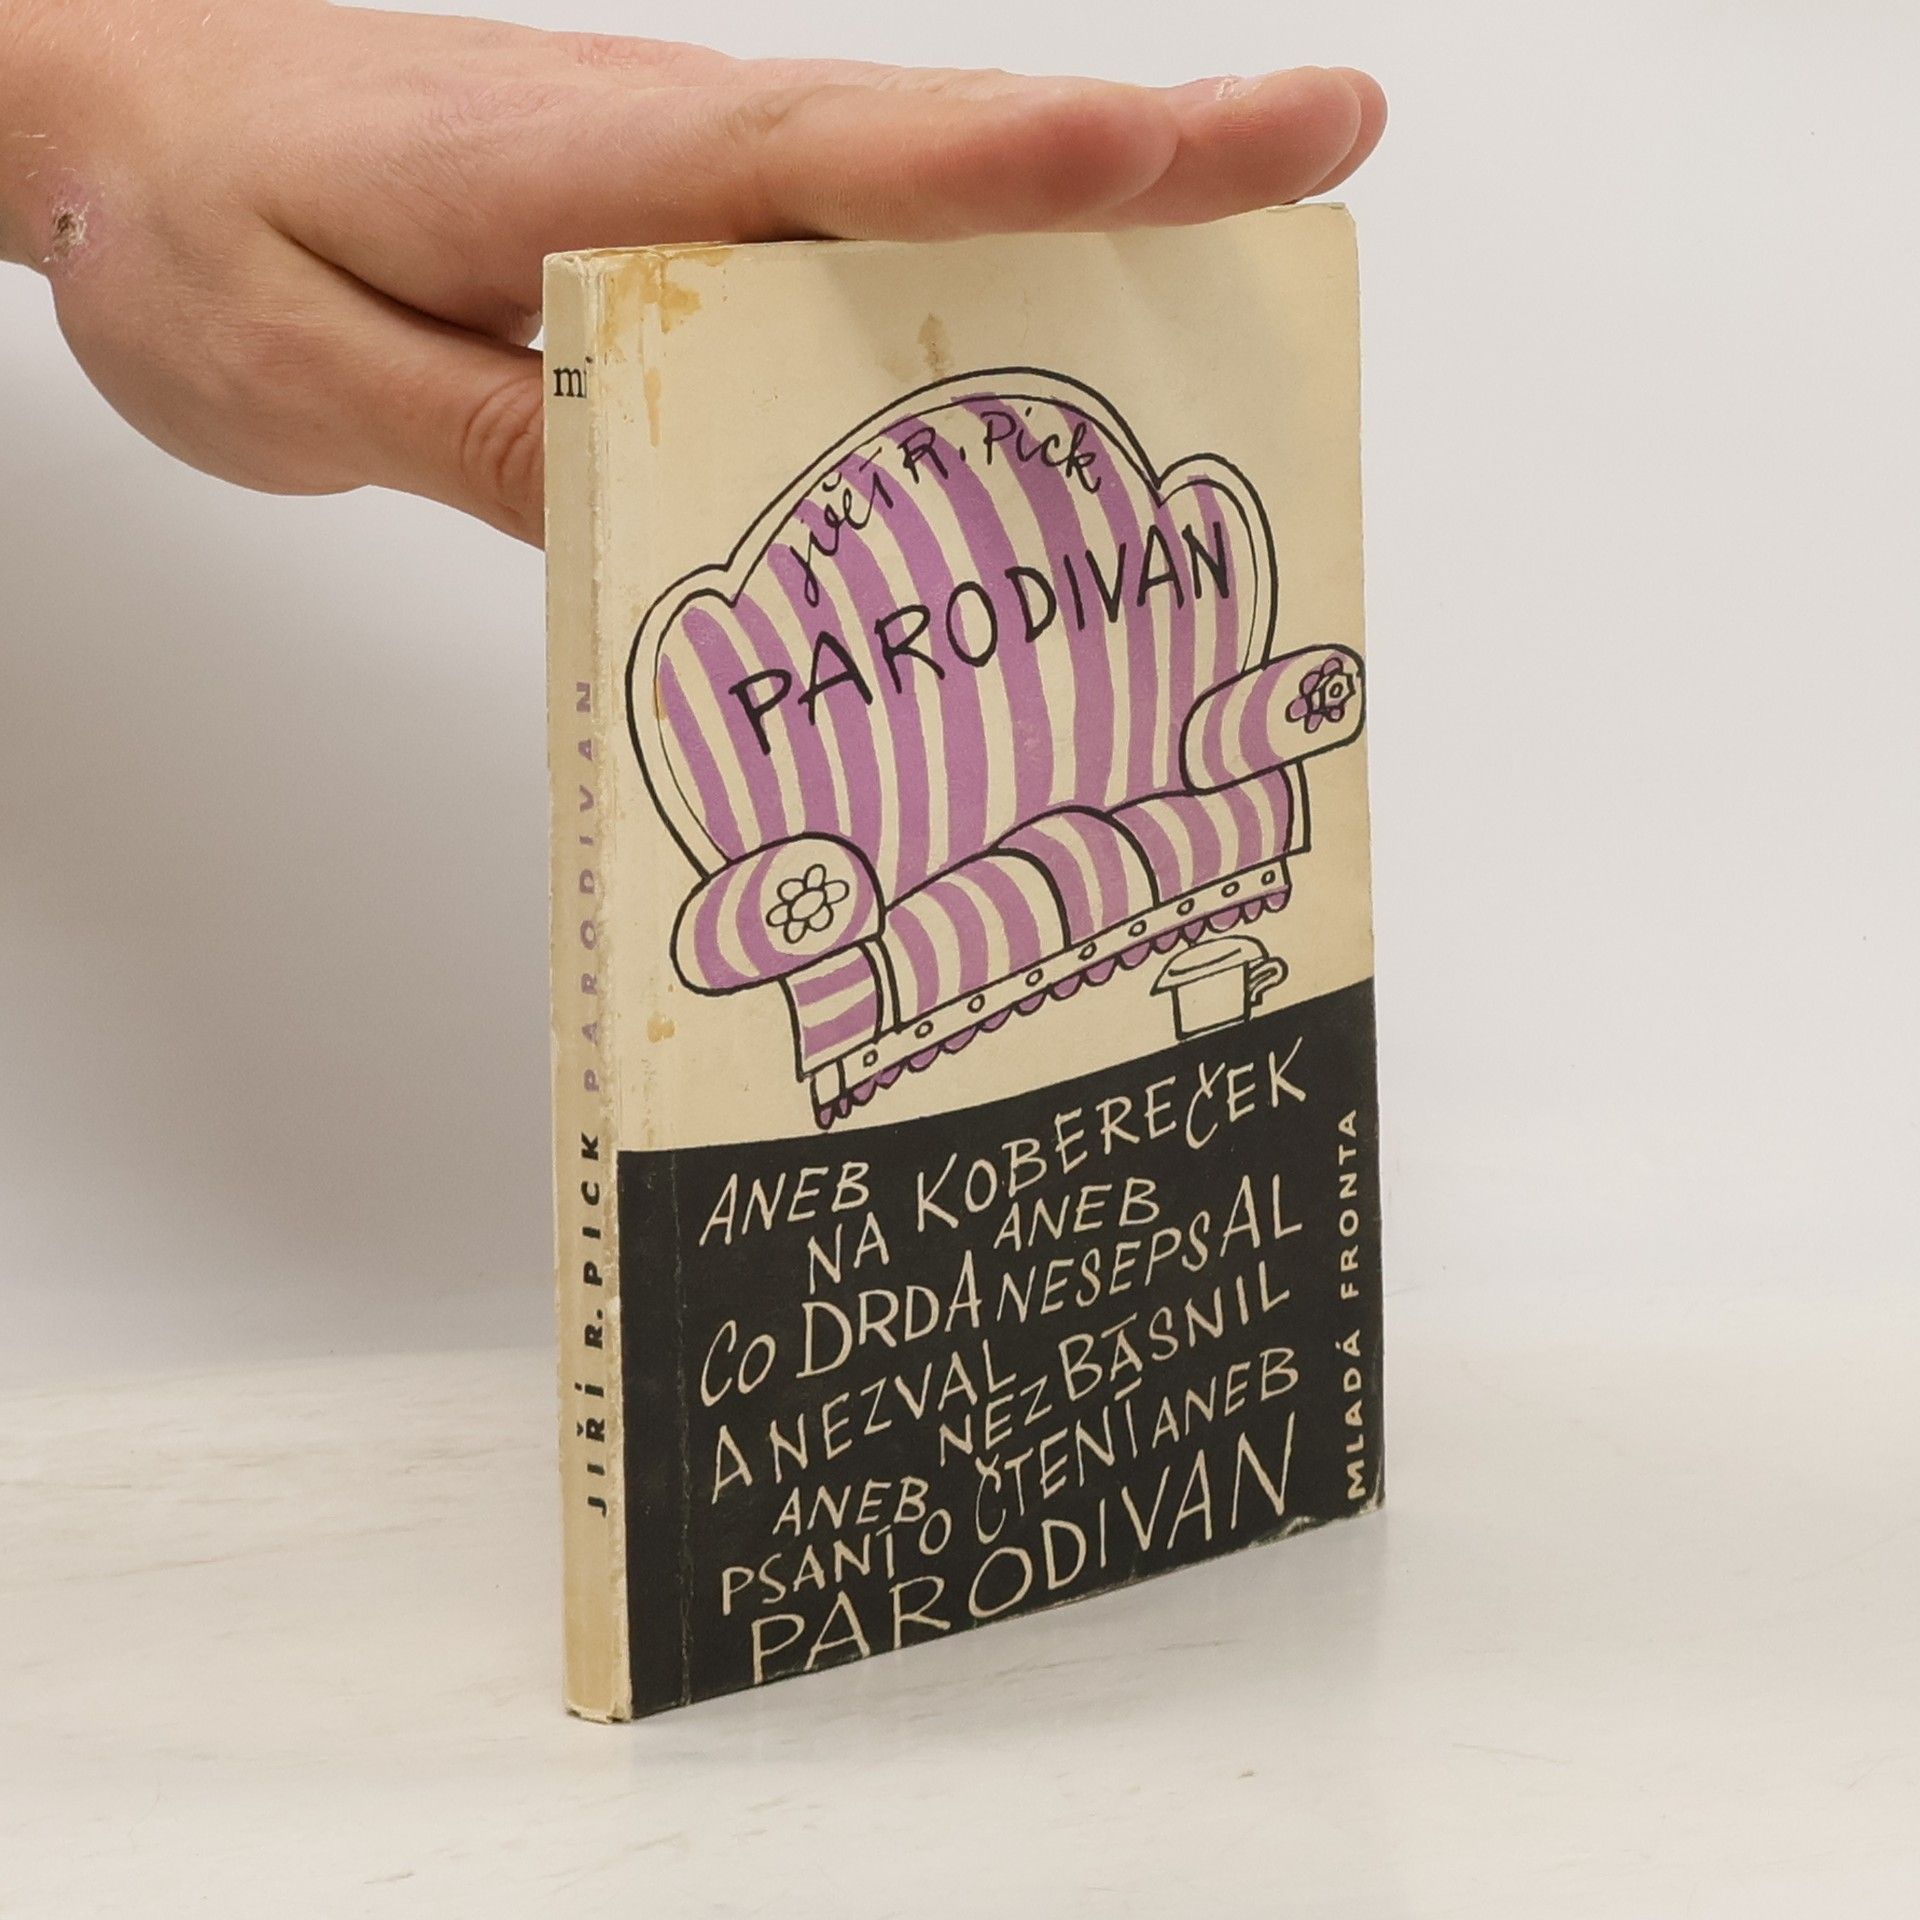 mf
JIŘÍ R. PICK PARODIVAN
Jiří R. Pick
PARODIVAN
ANEB
NA KOBEREČEK
ANEB
CO DRDA NESEPSAL
A NEZVAL
NEZBÁSNIL
ANEB
PSANÍ O ČTENÍ ANEB
PARODIVAN
MLADÁ FRONTA